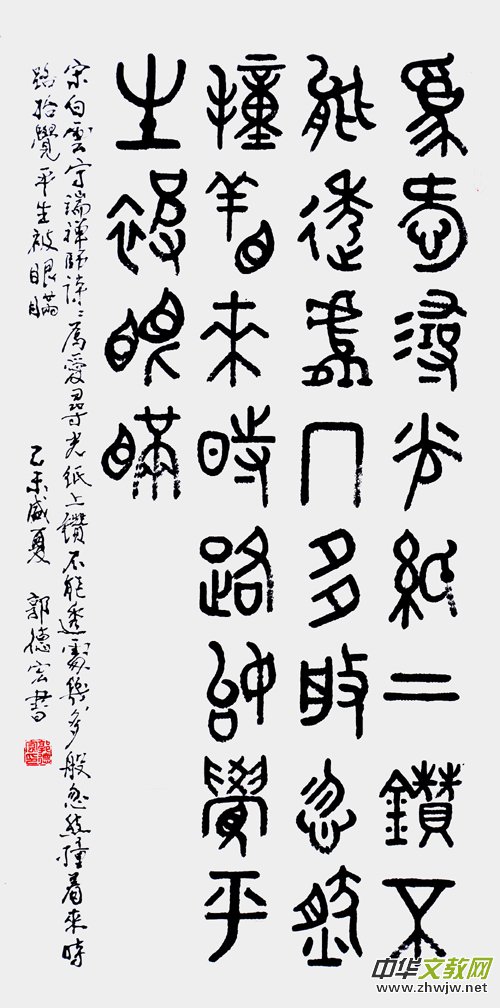 爲愛尋光紙上鑽不
能透處几多般忽然
撞着來時路始覺平
生被眼瞞
宋白雲守端禪師詩：爲愛尋光紙上鑽不能透處幾多般忽然撞着來時
路始覺平生被眼瞞
乙未盛夏 郭德宏書
郭德宏印
中华文教网
www.zhwjw.net